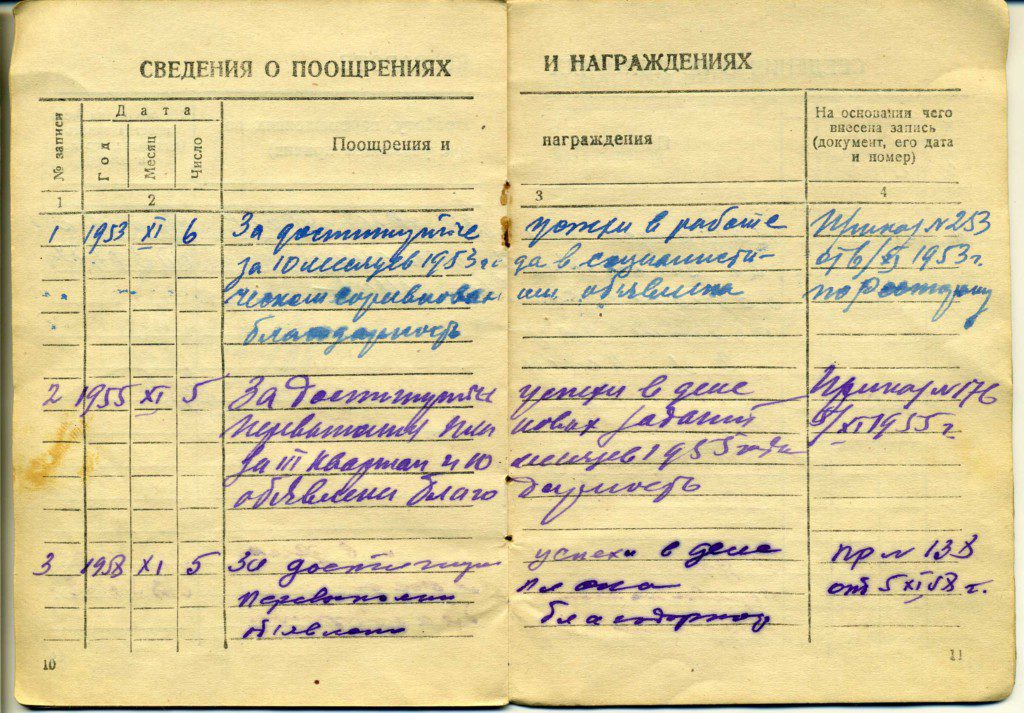 СВЕДЕНИЯ О ПООЩРЕНИЯХ И НАГРАЖДЕНИЯХ
№ записи
Дата
Год
Месяц
Число
Поощрения и награждения
На основании чего
внесена запись
(документ, его дата
и номер)
1 2 3 4
1 1953 XI 6 За достигнутые успехи в работе Приказ №253
за 10 месяцев 1953 го да в социалисти- от 6/XI 1953г.
" " " ческом соревнован ии объявлена по
благодарность
2 1955 XI 5 За достигнутые успехи в деле Приказ №176
новых заданий 5/XI 1955 г.
за III квартал и 10 месяцев 1955 года
объявлена благо дарность
3 1958 XI 5 За успехи в деле пр № 138
плана от 5 XI 58 г.
объявлена
10 11